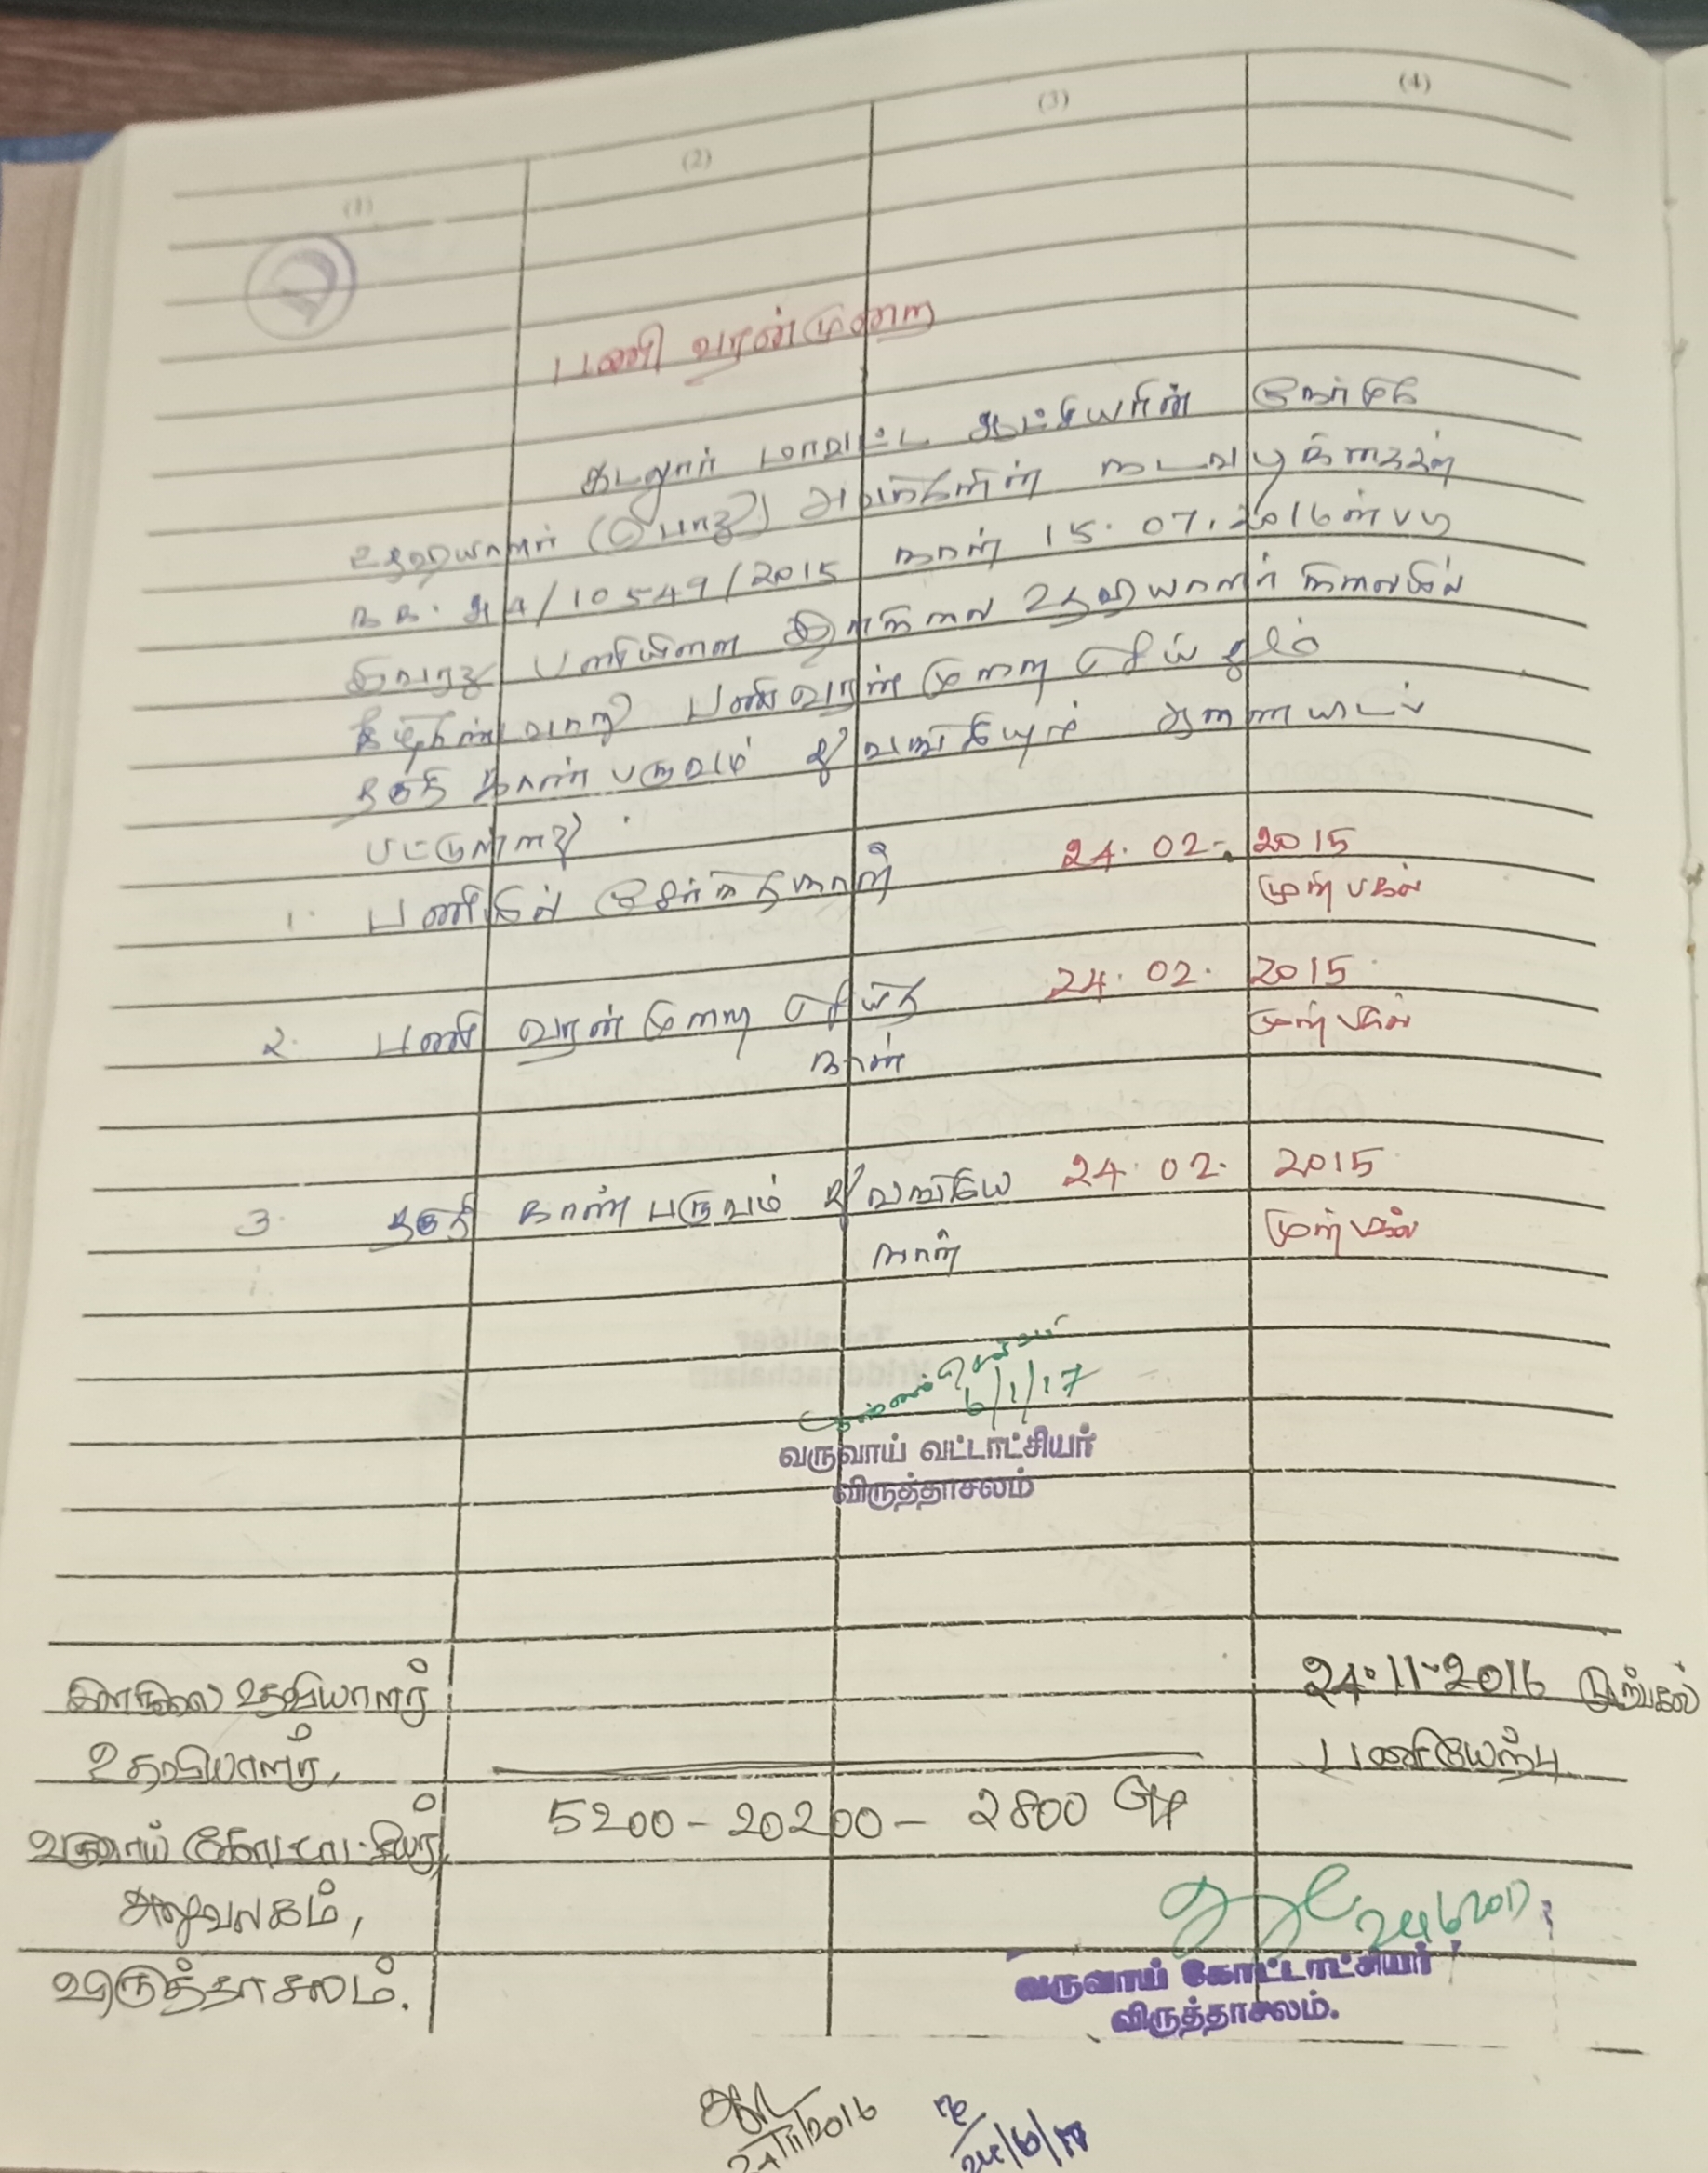 (1) (2) (3) (4)
பணி வரன்முறை
கடலூர் மாவட்ட ஆட்சியரின் நேர்முக
உதவியாளர் (பொது) அவர்களின் நடைமுறைகள்
ந.க. அ4/10549/2015 நாள் 15.07.2016ன்படி
இவரது பணியினை இளநிலை உதவியாளர் நிலையில்
கீழ்கண்டவாறு பணிவரன்முறை செய்தும்
தகுதி காண் பருவம் துவங்கியும் ஆணையிடப்
பட்டுள்ளது.
1. பணியில் சேர்ந்த நாள் 24.02.2015
முன்பகல்
2. பணி வரன்முறை செய்த 24.02.2015
நாள் முன்பகல்
3. தகுதி காண் பருவம் துவங்கிய 24.02.2015
நாள் முன்பகல்
6/1/17
வருவாய் வட்டாட்சியர்
விருத்தாசலம்
இளநிலை உதவியாளர் 24.11.2016 முற்பகல்
உதவியாளர், பணியேற்பு
வருவாய் கோட்டாட்சியர் 5200-20200-2800 GP
அலுவலகம்,
விருத்தாசலம்.
24/6/2017
வருவாய் கோட்டாட்சியர்
விருத்தாசலம்.
24/11/2016 24/6/17